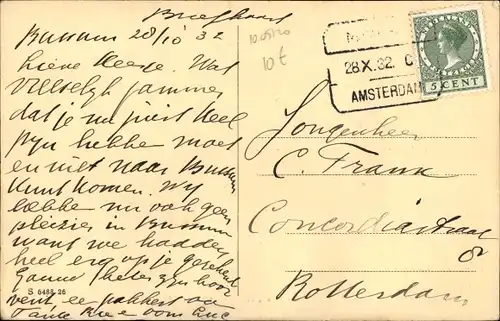 Briefkaart
Bussum 28/10 32
Lieve Keesje. Wat
vreeselijk jammer
dat je nu juist keel
pijn hebben moet
en niet naar Bussum
kunt komen. Wij
hebben nu ook geen
plezier in Bussum
want we hadden
heel erg op je gerekend
Gauw beter zijn hoor
vent, ee pakkert van
Tante en oom
S 6483.26
10 ct
28.X.32.
AMSTERDAM
NEDERLAND
5 CENT
Jongenheer
C. Frank
Concordiastraat
Rotterdam